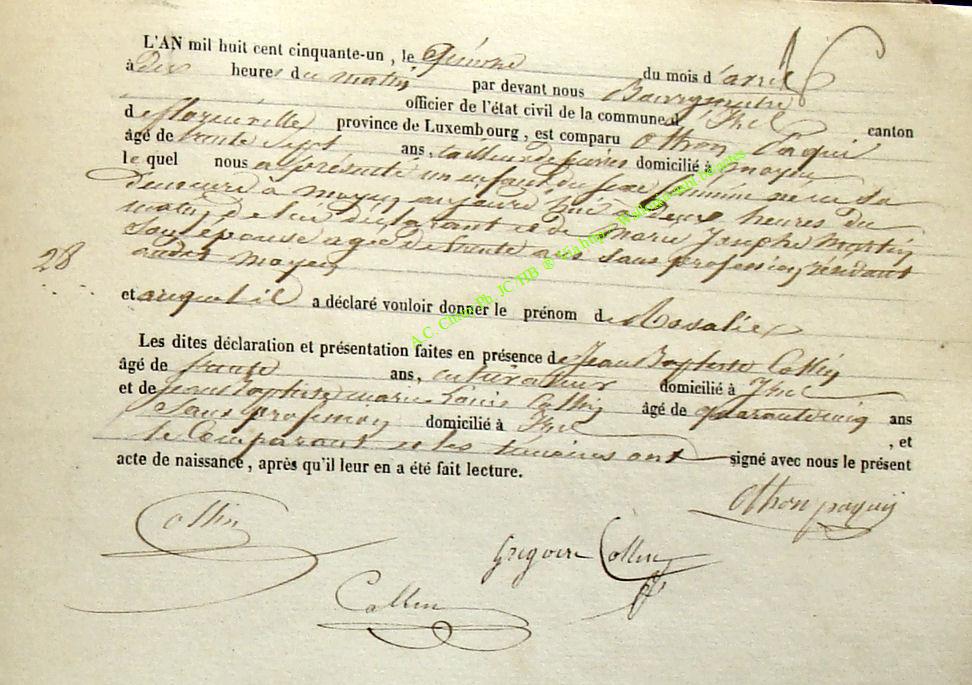 16
L'AN mil huit cent cinquante-un, le quinze du mois d'avril
à dix heures du matin par devant nous Bourgmestre
officier de l'état civil de la commune d'Izel canton
de florenville province de Luxembourg, est comparu Othon Paquï
âgé de trente sept ans, tailleur de pierres domicilié à moyen
le quel nous a présenté un enfant du sexe féminin né en sa
demeure à moyen aujourd'hui heures du
matin de lui déclarant et de marie Josephe Martin
son épouse agée de trente ans sans profession, résidant
audit moyen
28
et auquel il a déclaré vouloir donner le prénom de Rosalie
Les dites déclaration et présentation faites en présence de Jean Baptiste Collin
âgé de trente ans, cultivateur domicilié à Izel
et de jean baptiste marie Louis Collin âgé de quarante cinq ans
sans profession domicilié à Izel , et
le comparant et les témoins ont signé avec nous le présent
acte de naissance, après qu'il leur en a été fait lecture.
Othon paquij
Collin
Grégoire Collin
Collin